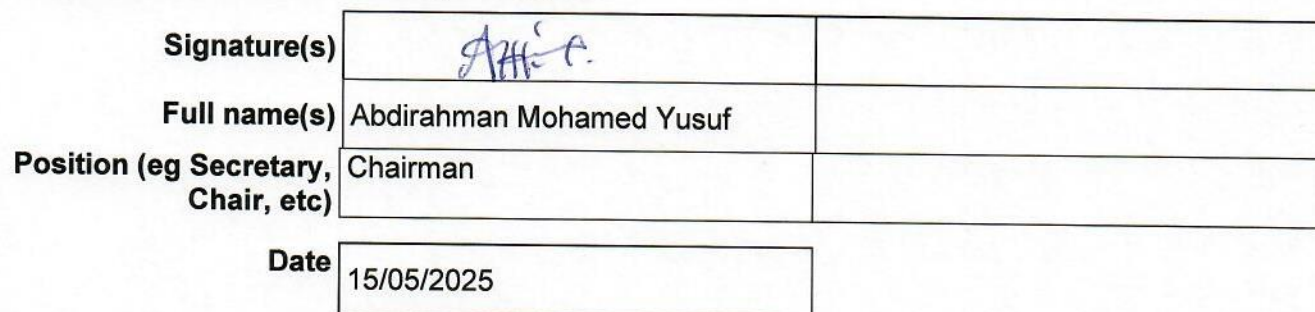 Signature(s)
Full name(s) Abdirahman Mohamed Yusuf
Position (eg Secretary, Chairman
Chair, etc)
Date 15/05/2025